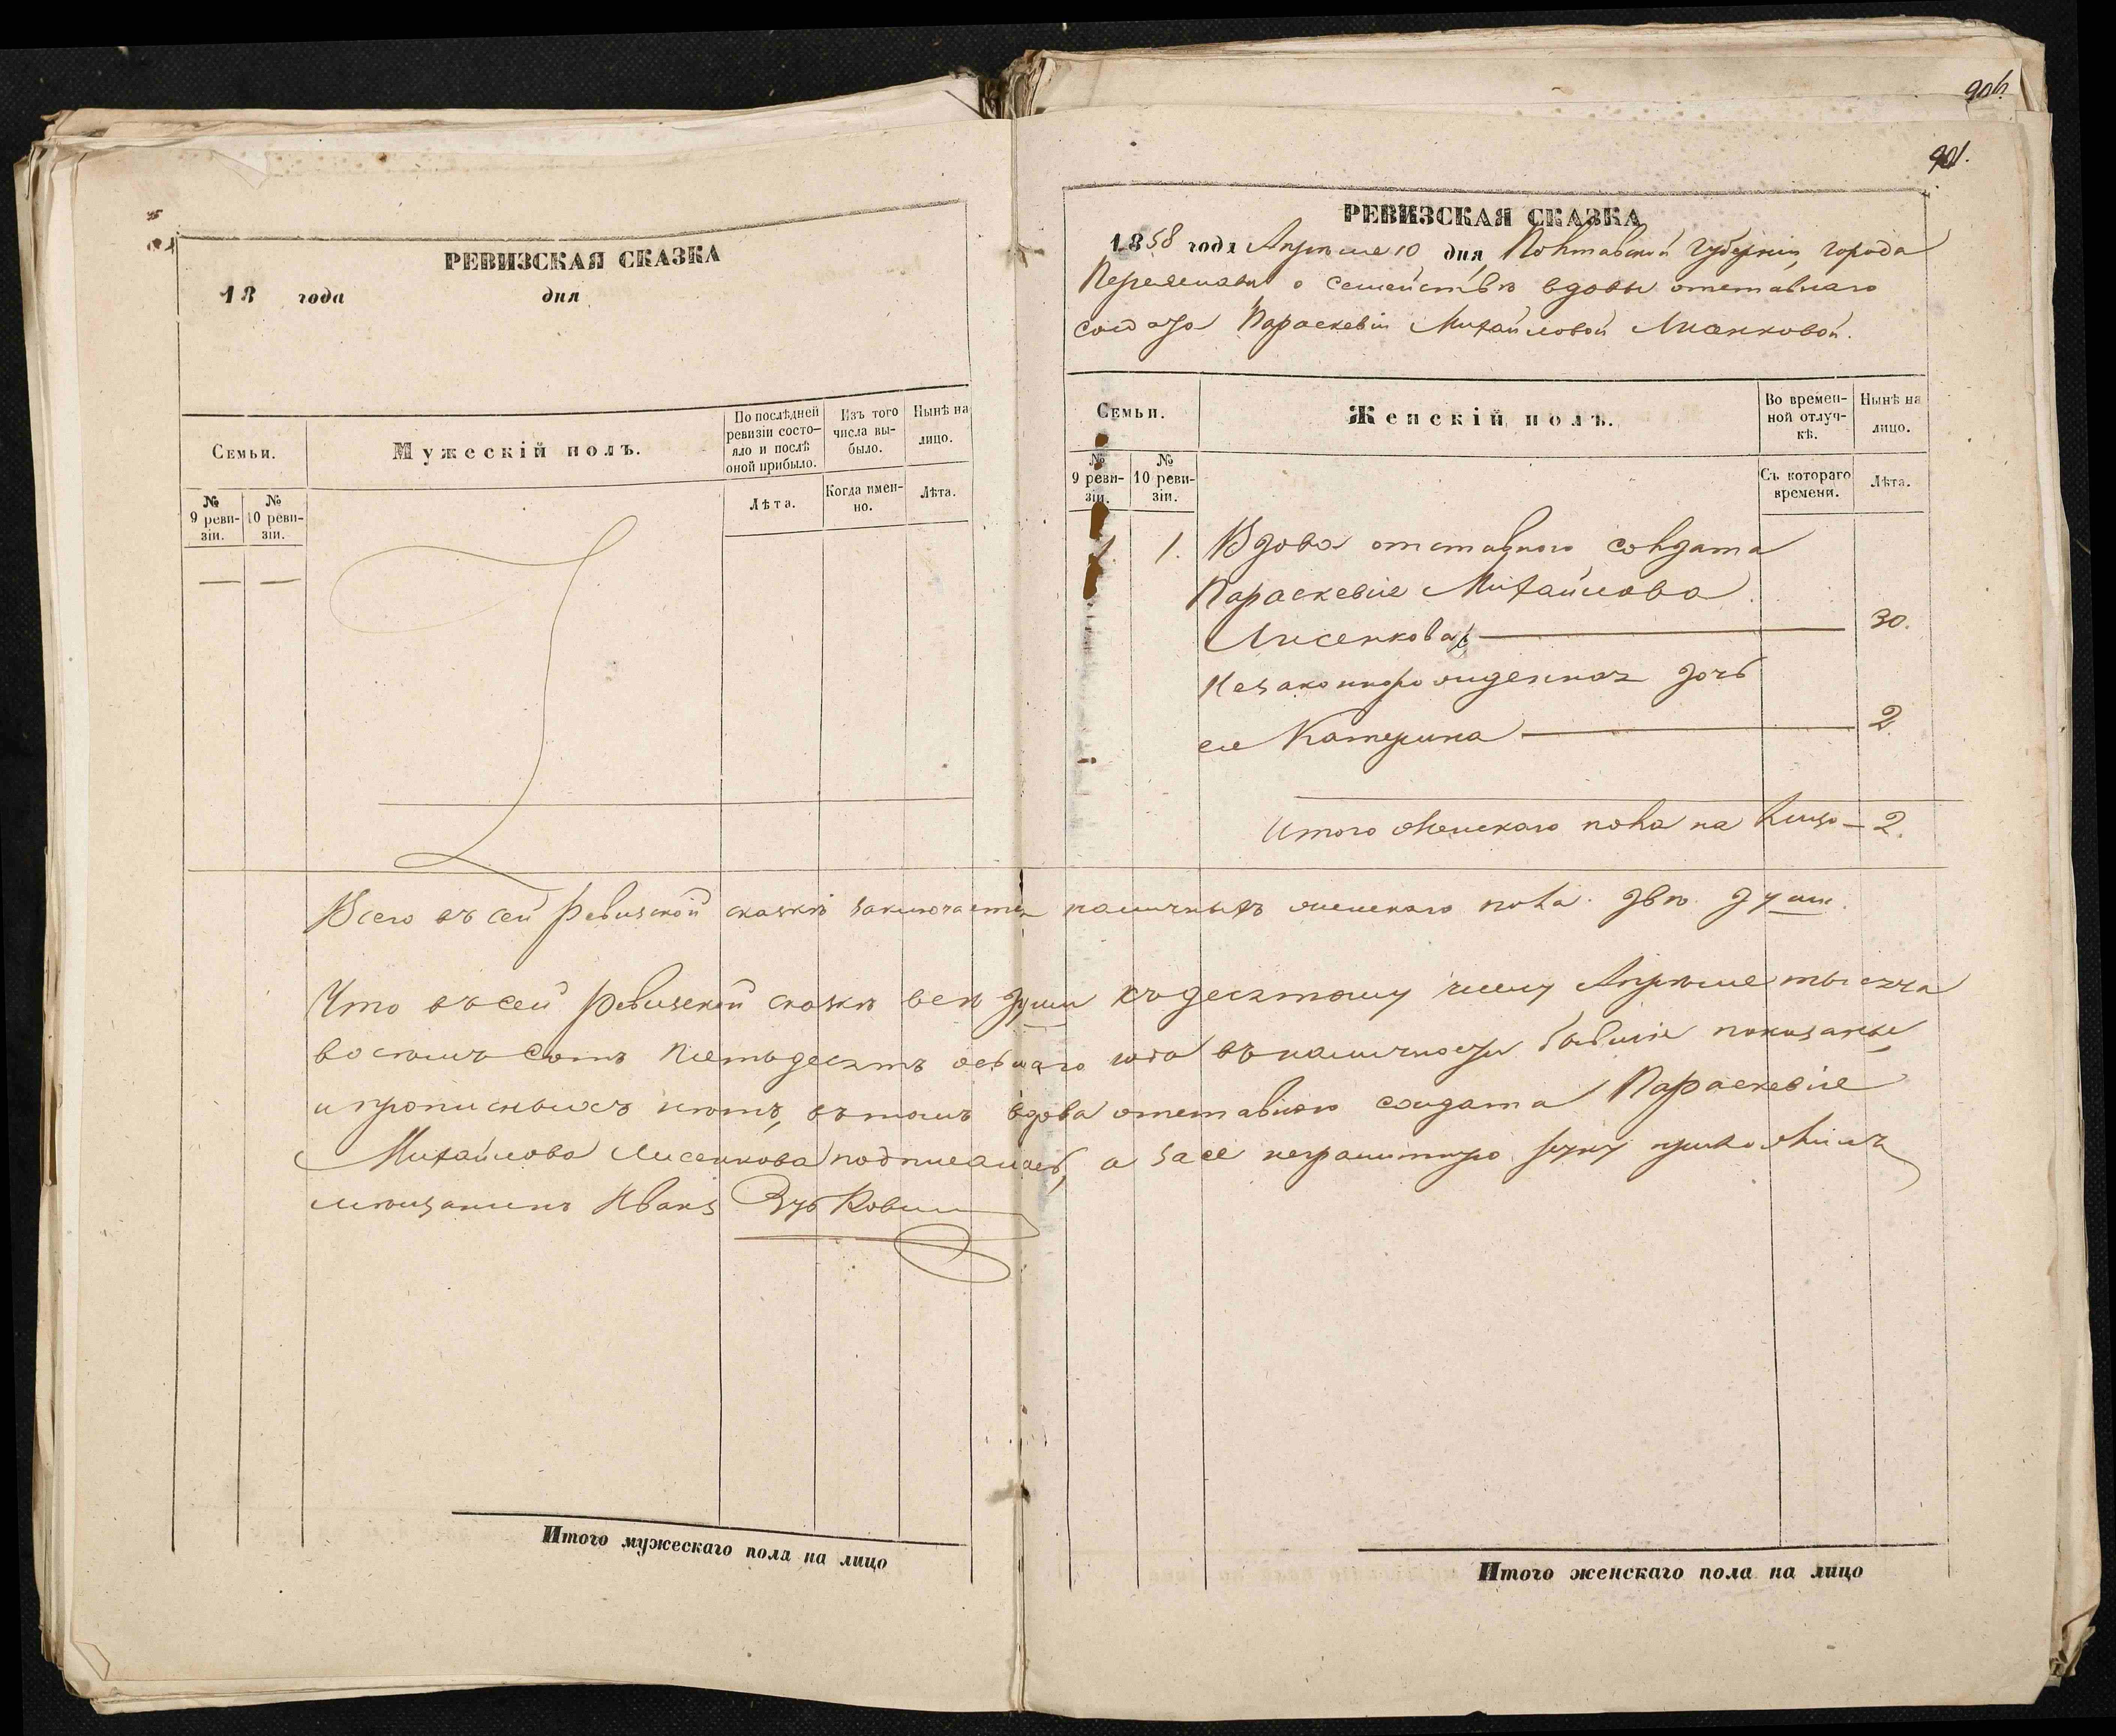 906.
901.
РЕВИЗСКАЯ СКАЗКА
18 года дня
Семьи.
Мужескій полъ.
По послѣдней ревизіи состояло и послѣ оной прибыло.
Изъ того числа выбыло.
Нынѣ на лицо.
№ 9 ревизіи.
№ 10 ревизіи.
Лѣта.
Когда именно.
Лѣта.
— —
РЕВИЗСКАЯ СКАЗКА
1858 года Апрѣля 10 дня Полтавской Губерніи, города
Переяслава о семействѣ вдовы отставнаго
солдата Параскевіи Михайловой Лисенковой.
Семьи.
Женскій полъ.
Во временной отлучкѣ.
Нынѣ на лицо.
№ 9 ревизіи.
№ 10 ревизіи.
Съ котораго времени.
Лѣта.
1. Вдова отставного солдата
Параскевія Михайлова
Лисенкова — 30.
Незаконнорожденная дочь
ея Катерина — 2.
Итого женскаго пола на лицо — 2.
Всего въ сей ревизской сказкѣ заключается наличныхъ женскаго пола двѣ душ.
Что въ сей ревизской сказкѣ всѣ души къ десятому числу Апрѣля тысяча
восемъ сотъ пятьдесятъ осьмаго года въ наличности бывшія показаны
и прописныхъ нѣтъ, въ томъ вдова отставнаго солдата Параскевія
Михайлова Лисенкова подписалась, а за ее неграмотную руку приложилъ
мѣщанинъ Иванъ
Итого мужескаго пола на лицо
Итого женскаго пола на лицо